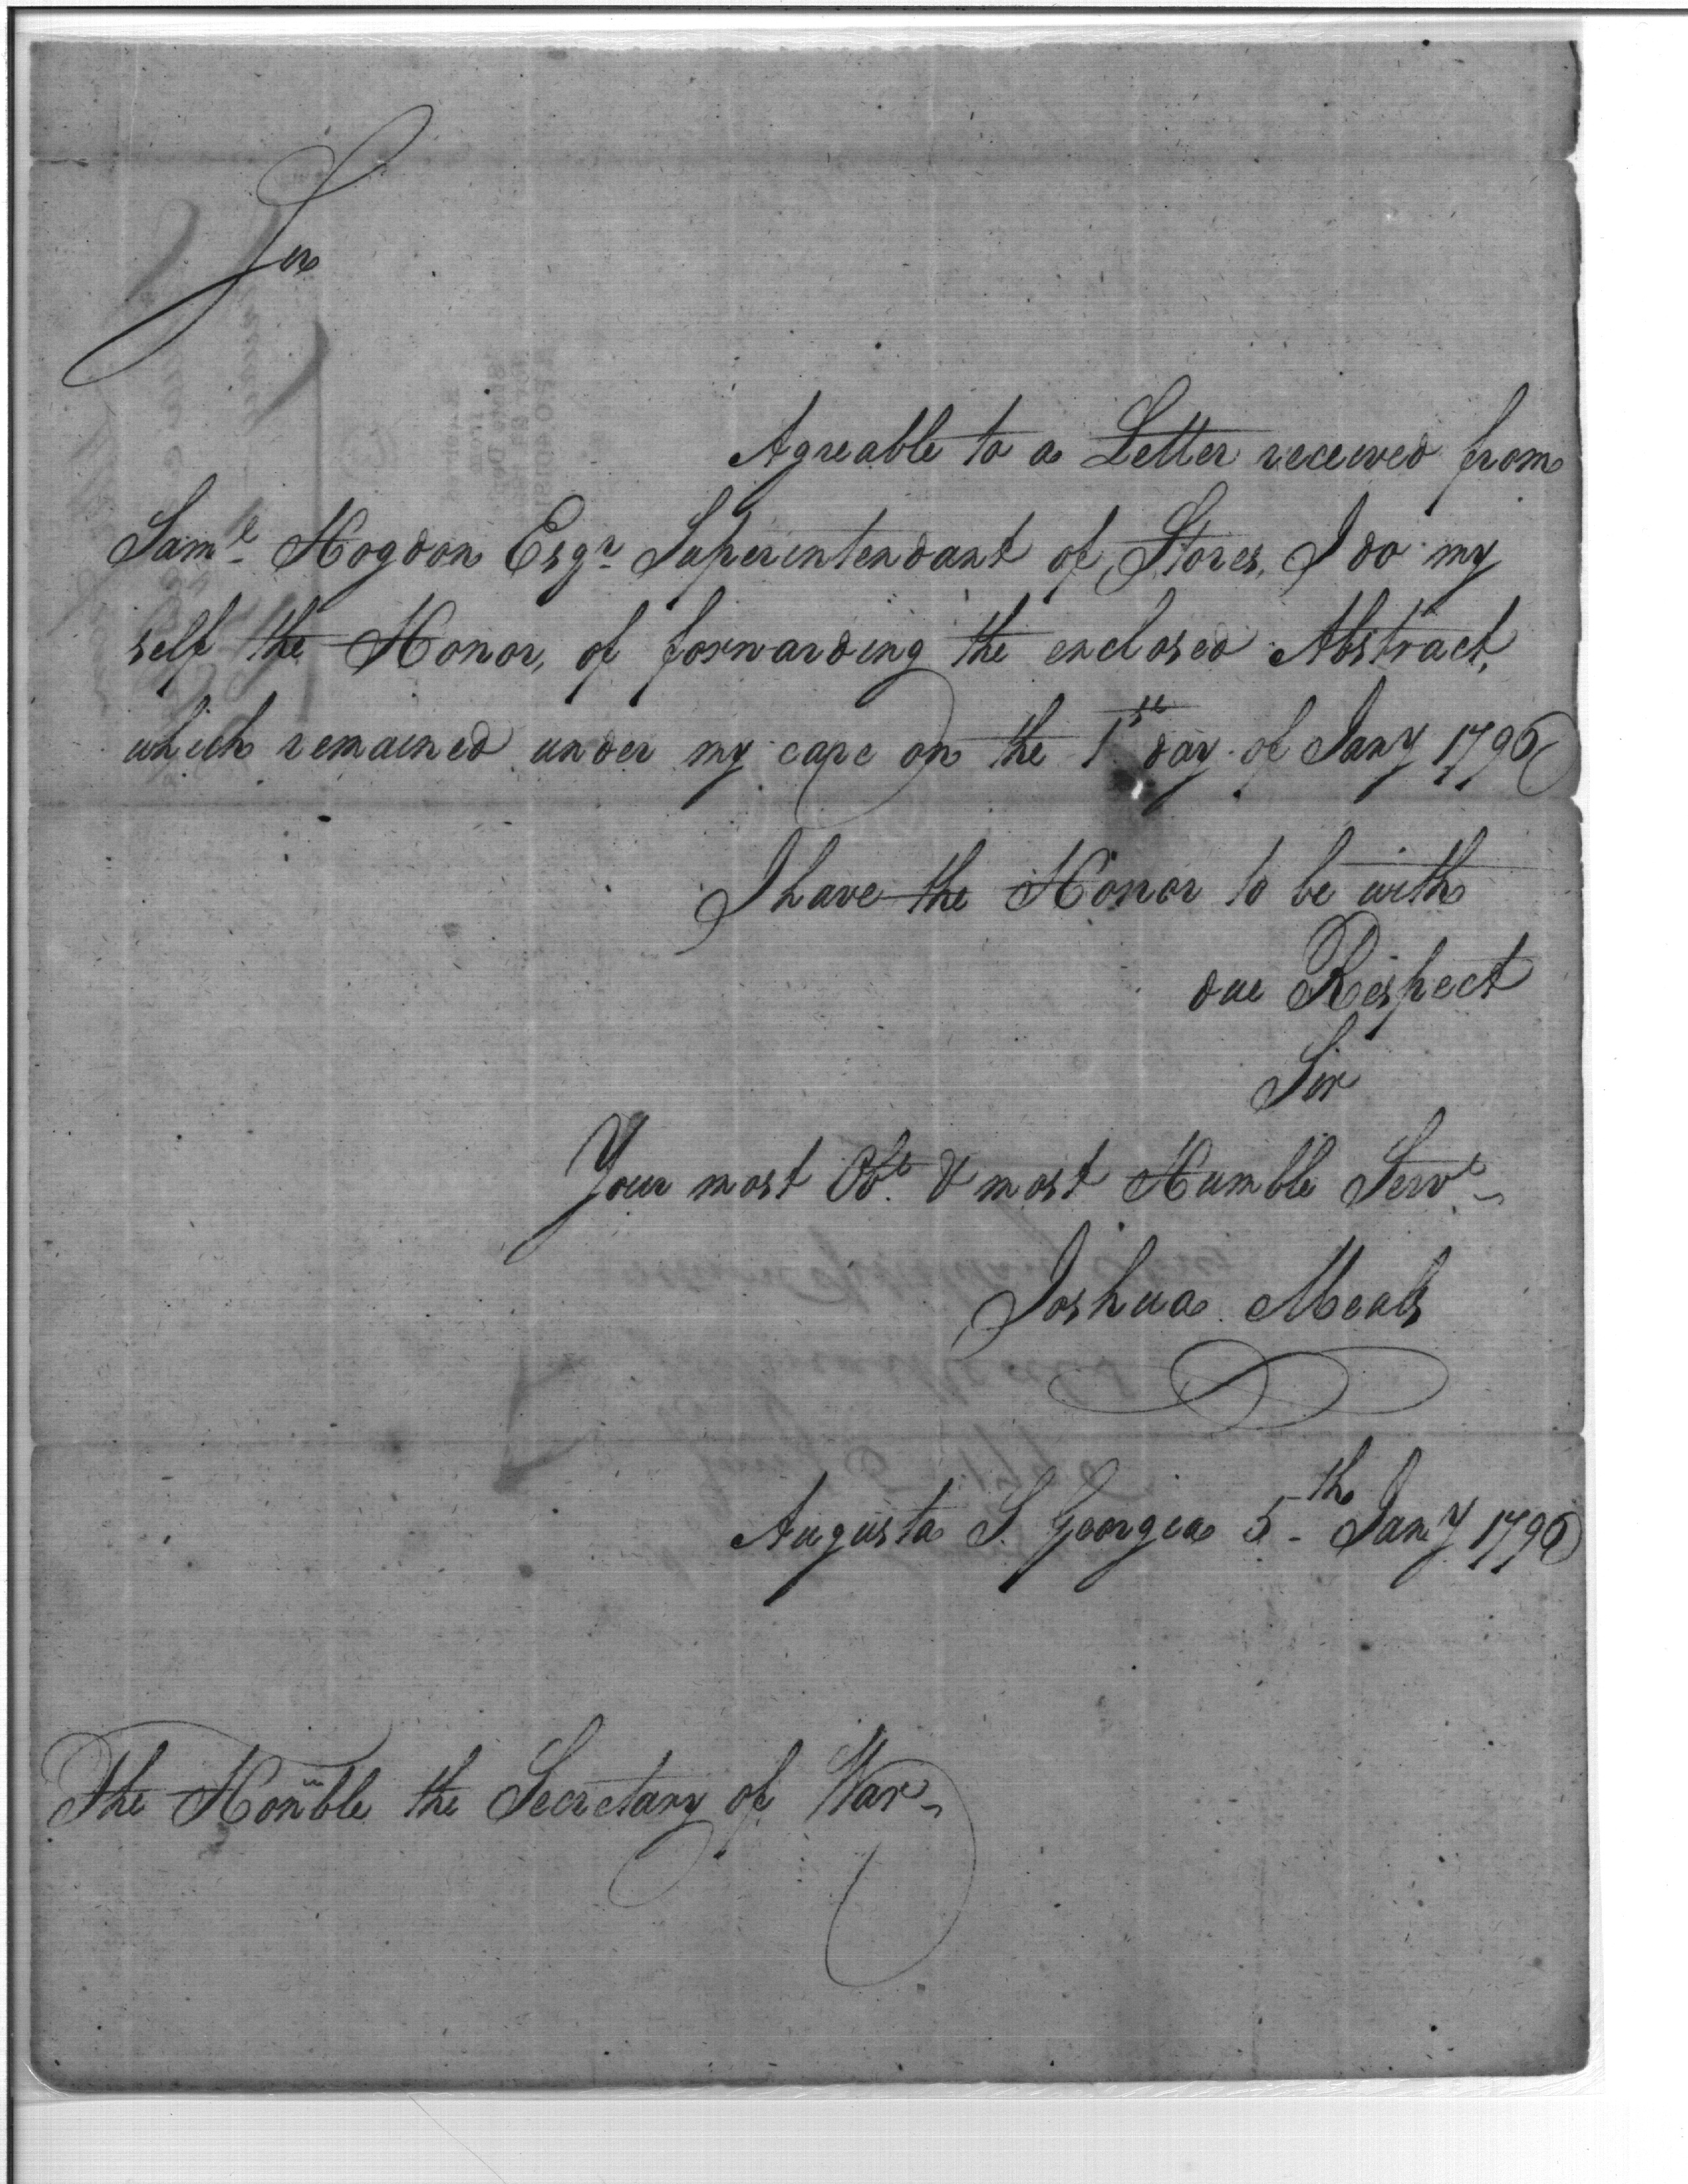 Sir
Agreable to a Letter received from
Saml Hogdon Esqr Superintendant of Stores, I do my
self the Honor, of forwarding the enclosed Abstract,
which remained under my care on the 1st day of Jany 1796
I have the Honor to be with
due Respect
Sir
Your most Obt & most Humble Servt
Joshua Meals
Augusta S. Georgia 5th Jany 1796
The Honble the Secretary of War